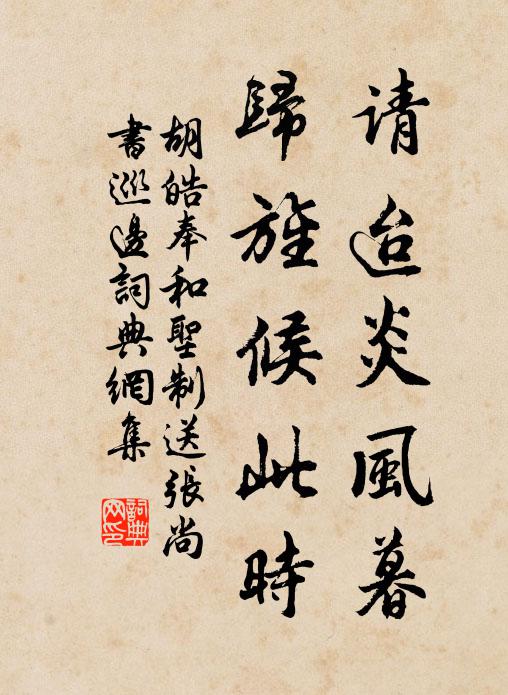 请迨炎風暮
歸旌候此時
胡皓奉和聖制送張尚
書巡邊詞典網集
詞典
网印